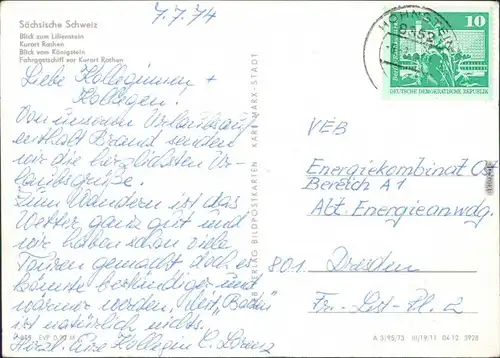 7.7.74
Sächsische Schweiz
Blick zum Lilienstein
Kurort Rathen
Blick vom Königstein
Fahrgastschiff vor Kurort Rathen
Liebe Kolleginnen +
Kollegen!
Von unserem Urlaubsauf-
enthalt Brand senden
wir die herzlichsten Ur-
laubsgrüße.
Zum Wandern ist das
Wetter ganz gut und
wir haben schon viele
Touren gemacht doch es
könnte beständiger und
wärmer werden, mit "Baden"
ist natürlich nichts.
Herzl. Eure Kollegin C. Lorenz
EVP 0,20 M
VERLAG BILDPOSTKARTEN KARL-MARX-STADT
HOHNSTEIN
8352
10
DEUTSCHE DEMOKRATISCHE REPUBLIK
VEB
Energiekombinat Ost
Bereich A1
Abt. Energieanwdg.
801. Dresden
Fr.-List-Pl. 2
A 3/95/73 III/19/11 04 12 3928